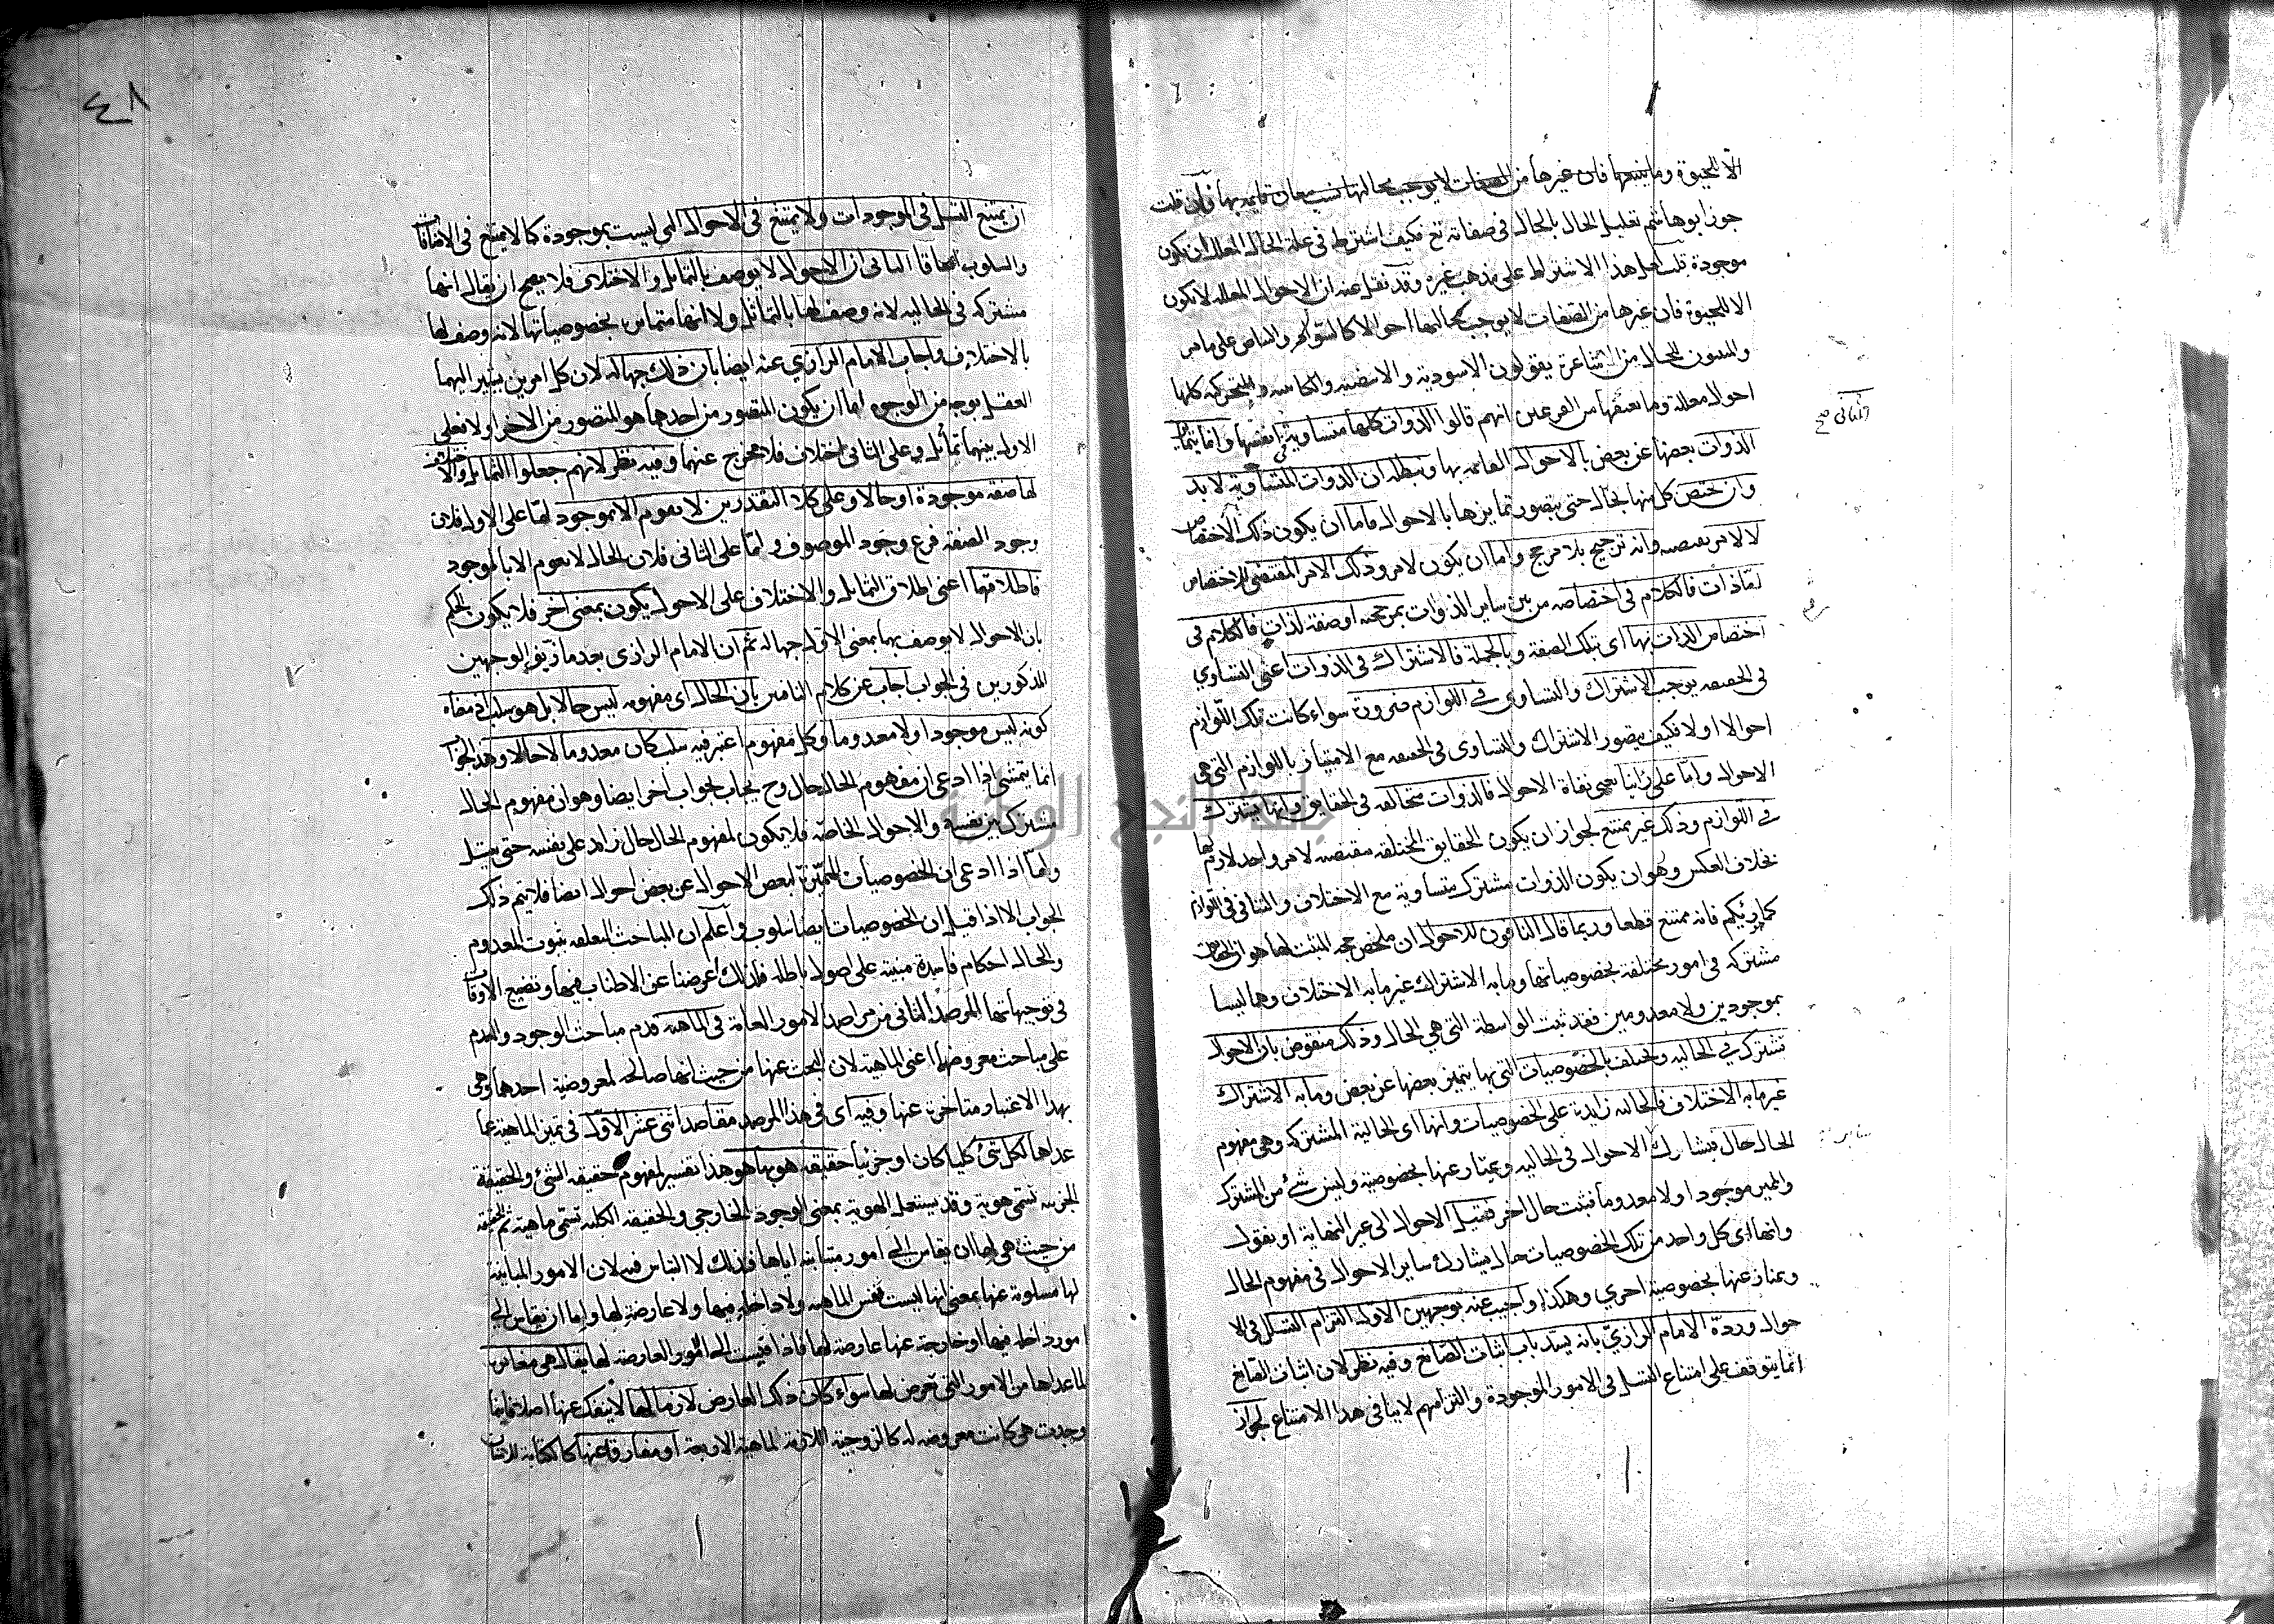 الا للحيوة وما يتبعها فان غيرها من الصفات لا يوجب لمحالها نسب معان قايمة بها فان قلت
جوز ابو هاشم تعليل الحال بالحال في صفاته تع فكيف اشترط في علة الحال المعلل ان يكون
موجودة قلت لعل هذا الاشتراط على مذهب غيره وقد نقل عنه ان الاحوال المعللة لا تكون
الا للحيوة فان غيرها من الصفات لا يوجب لمحالها احوالا كالسواد والبياض على ما مر
والمثبتون للحال من الاشاعرة يقولون الاسودية والابيضية والكاينية والمتحركية كلها
احوال معللة وما نعتقها من الفريقين انهم قالوا الذوات كلها متساوية في انفسها وانما يتمايز
الثاني صح
الذوات بعضها عن بعض بالاحوال القائمة بها ويبطله ان الذوات المتساوية لا بد
وان يختص كل منها بحال حتى يتصور تمايزها بالاحوال فاما ان يكون ذلك الاختصاص
لا لامر يقتضيه وانه ترجيح بلا مرجح واما ان يكون لامر وذلك الامر المقتضي للاختصاص
اما ذات فالكلام في اختصاصه من بين ساير الذوات بمرجحية او صفة لذات فالكلام في
اختصاص الذات بها اي بتلك الصفة وبالجملة فالاشتراك في الذوات اعني التساوي
في الحقيقة يوجب الاشتراك والتساوي في اللوازم ضرورة سواء كانت تلك اللوازم
احوالا او لا فكيف يتصور الاشتراك والتساوي في الحقيقة مع الامتياز باللوازم التي هي
الاحوال واما على رأينا يعني نفاة الاحوال فالذوات متخالفة في الحقايق وانها يشترك
في اللوازم وذلك غير ممتنع لجواز ان يكون الحقايق المختلفة مقتضية لامر واحد لازم لها
بخلاف العكس وهو ان يكون الذوات مشتركة متساوية مع الاختلاف والتنافي في اللوازم
كما رأيكم فانه ممتنع قطعا وربما قال النافون للاحوال ان ملخص حجة المثبت لها هو ان الحقايق
مشتركة في امور مختلفة بخصوصياتها وما به الاشتراك غير ما به الاختلاف وهما ليسا
بموجودين ولا معدومين فقد ثبت الواسطة التي هي الحال وذلك منقوض بان الاحوال
تشترك في الحالية وتختلف بالخصوصيات التي بها يتميز بعضها عن بعض وما به الاشتراك
غير ما به الاختلاف فالحالية زايدة على الخصوصيات وانها اي الحالية المشتركة وهي مفهوم
الحال حال فيشارك الاحوال في الحالية ويمتاز عنها بخصوصية وليس شئ من المشترك
والمميز موجودا ولا معدوما فثبت حال اخر فتتسلسل الاحوال الى غير النهاية او نقول
وانها اي كل واحد من تلك الخصوصيات حال يشارك ساير الاحوال في مفهوم الحال
ويمتاز عنها بخصوصية اخرى وهكذا واجيب عنه بوجهين الاول التزام التسلسل في الا
حوال ورده الامام الرازي بانه يسد باب اثبات الصانع وفيه نظر لان اثبات الصانع
انما يتوقف على امتناع التسلسل في الامور الموجودة والتزامهم لا ينافي هذا الامتناع لجواز
٤٨
ان يمتنع التسلسل في الموجودات ولا يمتنع في الاحوال التي ليست بموجودة كما لا يمتنع في الاضافات
والسلوب اتفاقا الثاني ان الاحوال لا يوصف بالتماثل والاختلاف فلا يصح ان يقال انها
مشتركة في الحالية لانه وصف لها بالتماثل ولا انها متمايزة بخصوصياتها لانه وصف لها
بالاختلاف واجاب الامام الرازي عنه ايضا بان ذلك جهالة لان كل امرين يشير اليهما
العقل بوجه من الوجوه اما ان يكون المتصور من احدهما هو المتصور من الاخر او لا فعلى
الاول بينهما تماثل وعلى الثاني اختلاف فلا مخرج عنهما وفيه نظر لانهم جعلوا التماثل والاختلاف
لها صفة موجودة او حالا وعلى كلا التقديرين لا يقوم الا بموجود اما على الاول فلان
وجود الصفة فرع وجود الموصوف واما على الثاني فلان الحال لا يقوم الا بالموجود
فاطلاقهما اعني اطلاق التماثل والاختلاف على الاحوال يكون بمعنى آخر فلا يكون الحكم
بان الاحوال لا يوصف بهما بمعنى الاول جهالة ثم ان الامام الرازي بعد ما زيف الوجهين
المذكورين في الجواب اجاب عن كلام النافين بان الحال اي مفهومه ليس حالا بل هو سلب اذ معناه
كونه ليس موجودا ولا معدوما وكل مفهوم اعتبر فيه سلب كان معدوما لا حالا وهذا الجواب
انما يتمشى اذا ادعى ان مفهوم الحال حال وح يجاب بجواب آخر ايضا وهو ان مفهوم الحال
مشترك بين نفسه والاحوال الخاصة فلا يكون لمفهوم الحال حال زايد على نفسه حتى يتسلسل
واما اذا ادعى ان الخصوصيات المميزة لبعض الاحوال عن بعض احوال ايضا فلا يتم ذلك
الجواب الا اذا قيل ان الخصوصيات ايضا سلوب واعلم ان المباحث المتعلقة بثبوت المعدوم
والحال احكام فاسدة مبنية على اصول باطلة فلذلك اعرضنا عن الاطناب فيها وتضييع الاوقات
في توجيهاتها المرصد الثاني من مراصد الامور العامة في الماهية قدم مباحث الوجود والعدم
على مباحث معروضهما اعني الماهية لان البحث عنها من حيث انها صالحة لمعروضية احدهما وهي
بهذا الاعتبار متأخرة عنها وفيه اي في هذا المرصد مقاصد اثني عشر الاول في تميز الماهية عما
عداها لكل شئ كليا كان او جزئيا حقيقة هو بها هو هذا تفسير لمفهوم حقيقة الشئ والحقيقة
الجزئية تسمى هوية وقد يستعمل الهوية بمعنى الوجود الخارجي والحقيقة الكلية تسمى ماهية ثم الحقيقة
من حيث هي اما ان يقاس الى امور مباينة اياها فذلك لا التباس فيه لان الامور المباينة
لها مسلوبة عنها بمعنى انها ليست نفس الماهية ولا داخلة فيها ولا عارضة لها واما ان يقاس الى
امور داخلة فيها او خارجة عنها عارضة لها فاذا قيست الى الامور العارضة لها يقال هي مغايرة
لما عداها من الامور التي تعرض لها سواء كان ذلك العارض لازما لها لا ينفك عنها اصلا فاينما
وجدت هي كانت معروضة له كالزوجية اللازمة لماهية الاربعة او مفارقا عنها كالكتابة للانسان
جامعة النجاح الوطنية